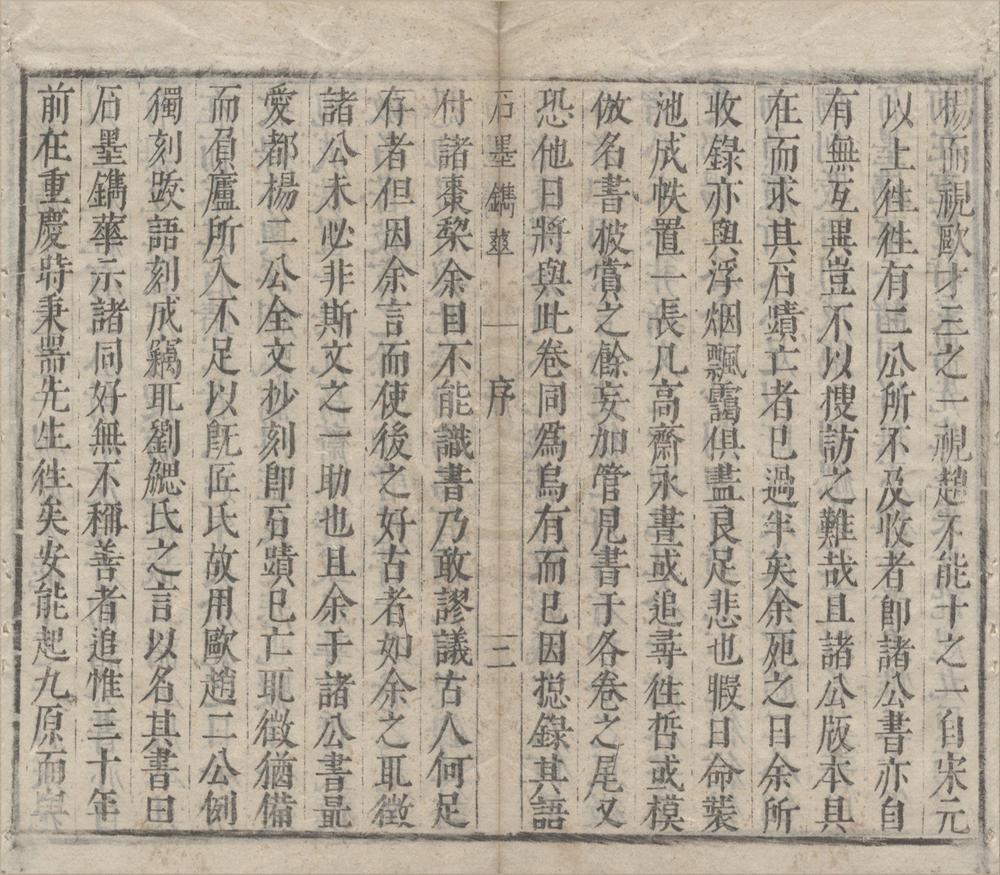 楊而視歐才三之一視趙不能十之一自宋元
以上徃徃有二公所不及收者即諸公書亦自
有無互異豈不以搜訪之難哉且諸公版本具
在而求其石蹟亡者已過半矣余死之日余所
收錄亦與浮烟飄靄俱盡良足悲也暇日命裝
池成帙置一長几高齋永晝或追尋徃哲或模
倣名書披賞之餘妄加管見書于各卷之尾又
恐他日將與此卷同爲烏有而已因搃錄其語
石墨鐫華 序 三
付諸棗棃余目不能識書乃敢謬議古人何足
存者但因余言而使後之好古者如余之耴徵
諸公未必非斯文之一助也且余于諸公書最
愛都楊二公全文抄刻即石蹟已亡耴徵猶備
而負廬所入不足以旣匠氏故用歐趙二公例
獨刻䟦語刻成竊耴劉勰氏之言以名其書曰
石墨鐫華示諸同好無不稱善者追惟三十年
前在重慶時秉器先生徃矣安能起九原而與